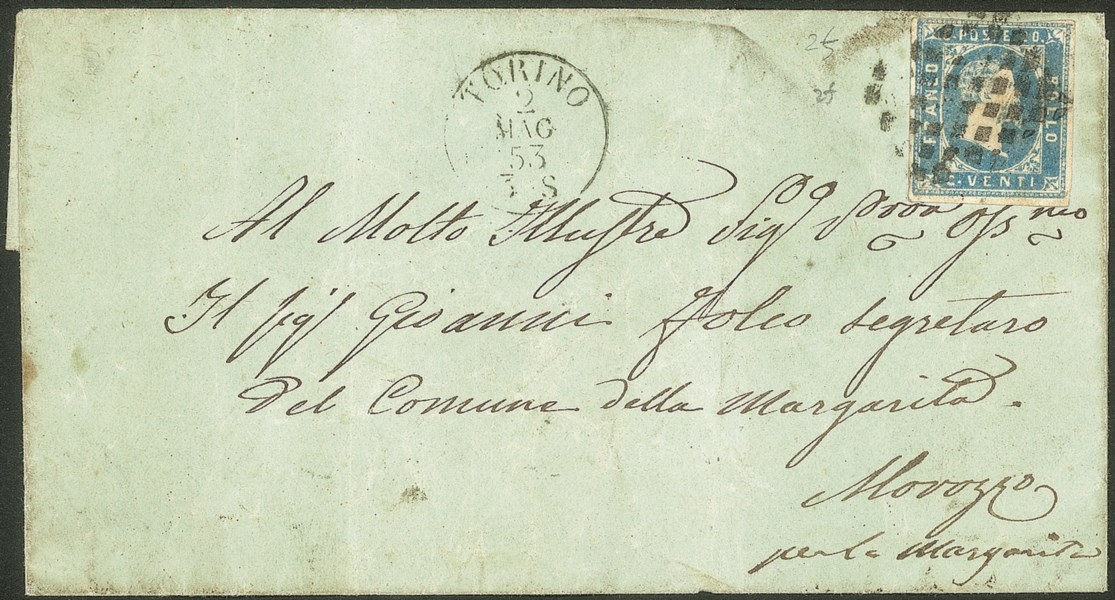 TORINO
2
MAG
53
3 S
2f
2f
C. POSTE 20.
FRANCO
BOLLO
C. VENTI
Al Molto Illustre Sig Prone Oss.mo
Il Sig Gioanni segretaro
Del Comune della Margarita.
Morozzo
per la Margarita